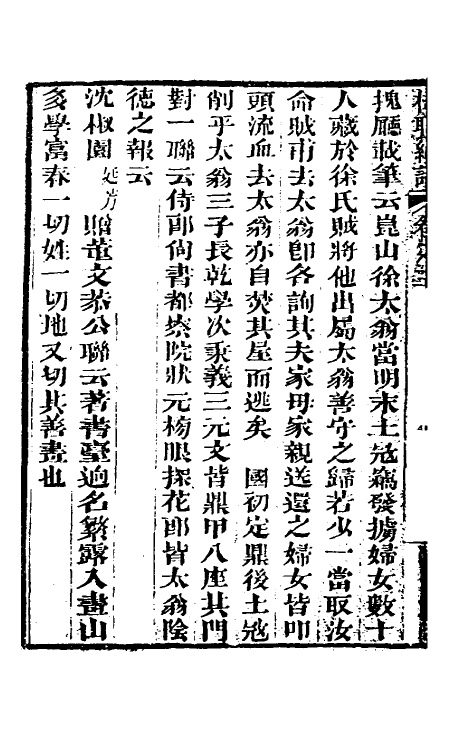 槐廳載筆云崑山徐太翁當明末土寇竊發擄婦女數十
人藏於徐氏賊將他出屬太翁善守之歸若少一當取汝
命賊甫去太翁卽各詢其夫家母家親送還之婦女皆叩
頭流血去太翁亦自焚其屋而逃矣　國初定鼎後土寇
削平太翁三子長乾學次秉義三元文皆鼎甲八座其門
對一聯云侍郎尙書都察院狀元榜眼探花郎皆太翁陰
德之報云
沈椒園廷芳贈董文恭公聯云著書臺逈名繁露入畫山
多學富春一切姓一切地又切其善畫也